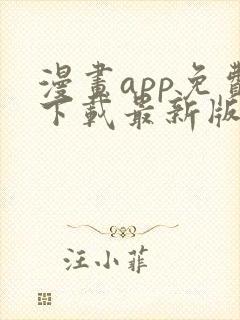 漫畫app免費
下載最新版
汪小菲